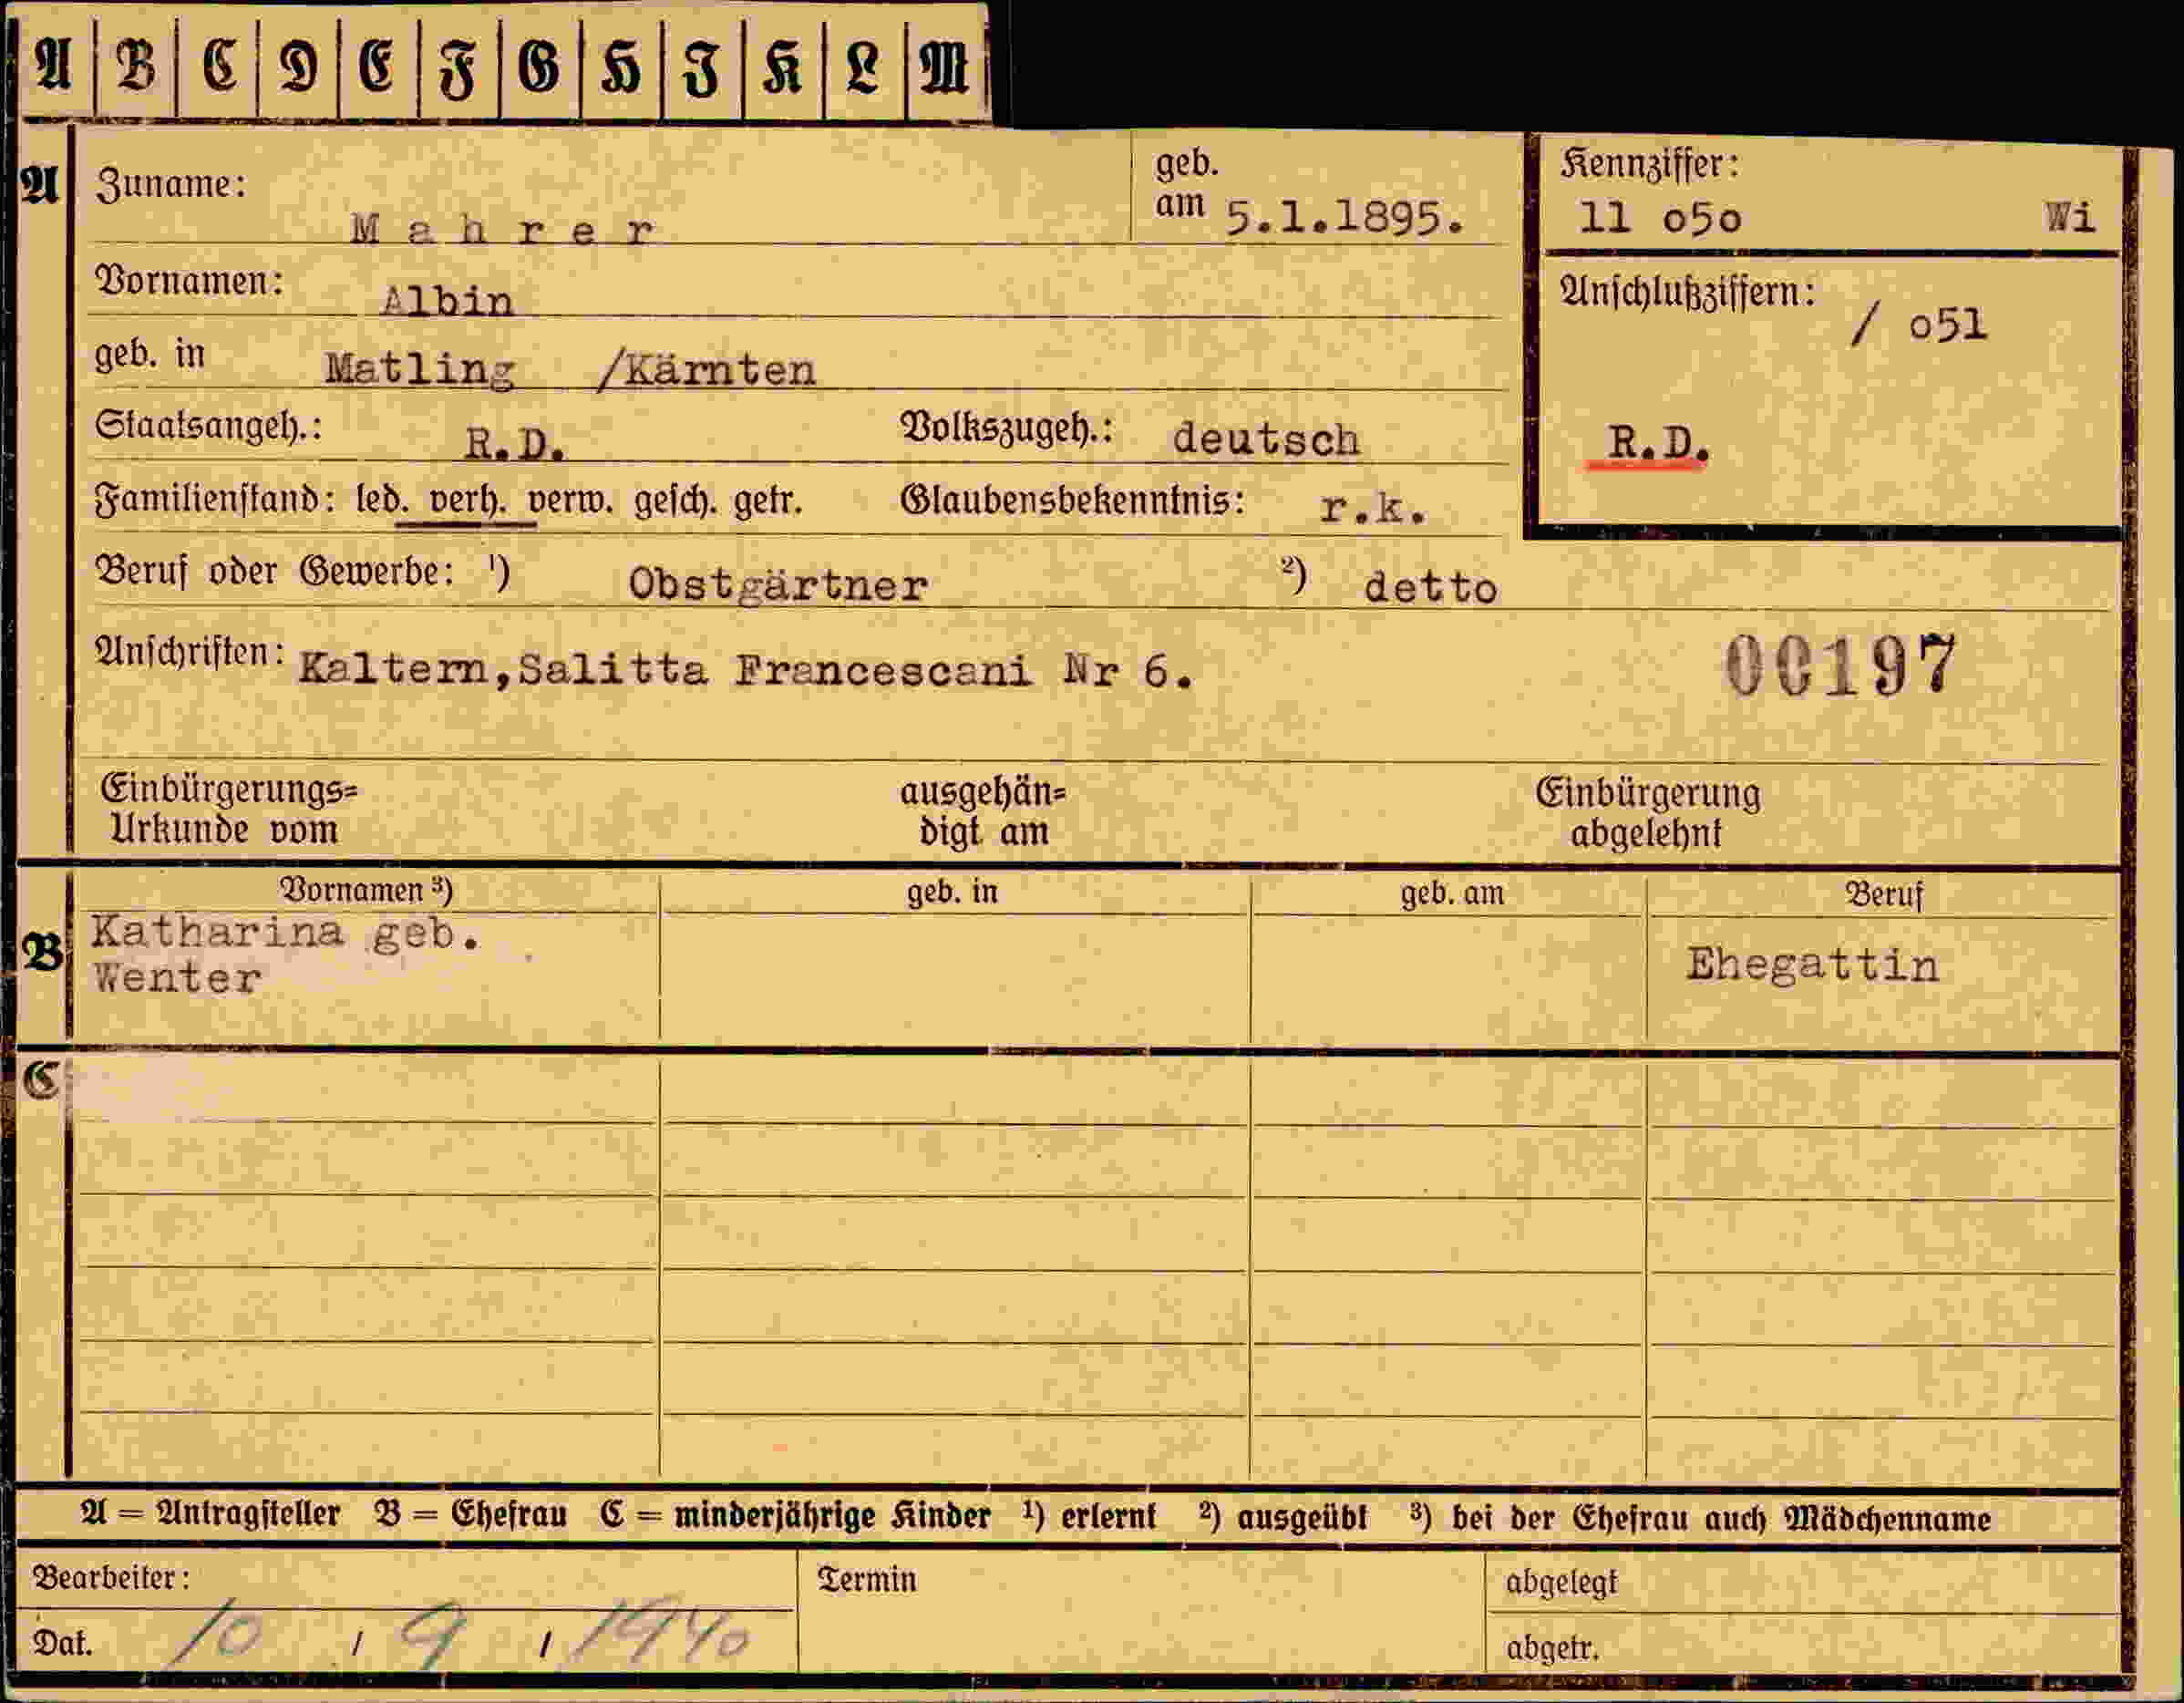 A B C D E F G H J K L M
A Zuname: Mahrer geb. am 5.1.1895. Kennziffer: 11 o5o Wi
Vornamen: Albin Anschlußziffern: / o51
geb. in Matling /Kärnten
Staatsangeh.: R.D. Volkszugeh.: deutsch R.D.
Familienstand: led. verh. verw. gesch. getr. Glaubensbekenntnis: r.k.
Beruf oder Gewerbe: 1) Obstgärtner 2) detto
Anschriften: Kaltern,Salitta Francescani Nr 6. 00197
Einbürgerungs= ausgehän= Einbürgerung
Urkunde vom digt am abgelehnt
Vornamen 3) geb. in geb. am Beruf
B Katharina geb.
Wenter Ehegattin
C
A = Antragsteller B = Ehefrau C = minderjährige Kinder 1) erlernt 2) ausgeübt 3) bei der Ehefrau auch Mädchenname
Bearbeiter: Termin abgelegt
Dat. 10 / 9 / 1940 abgetr.